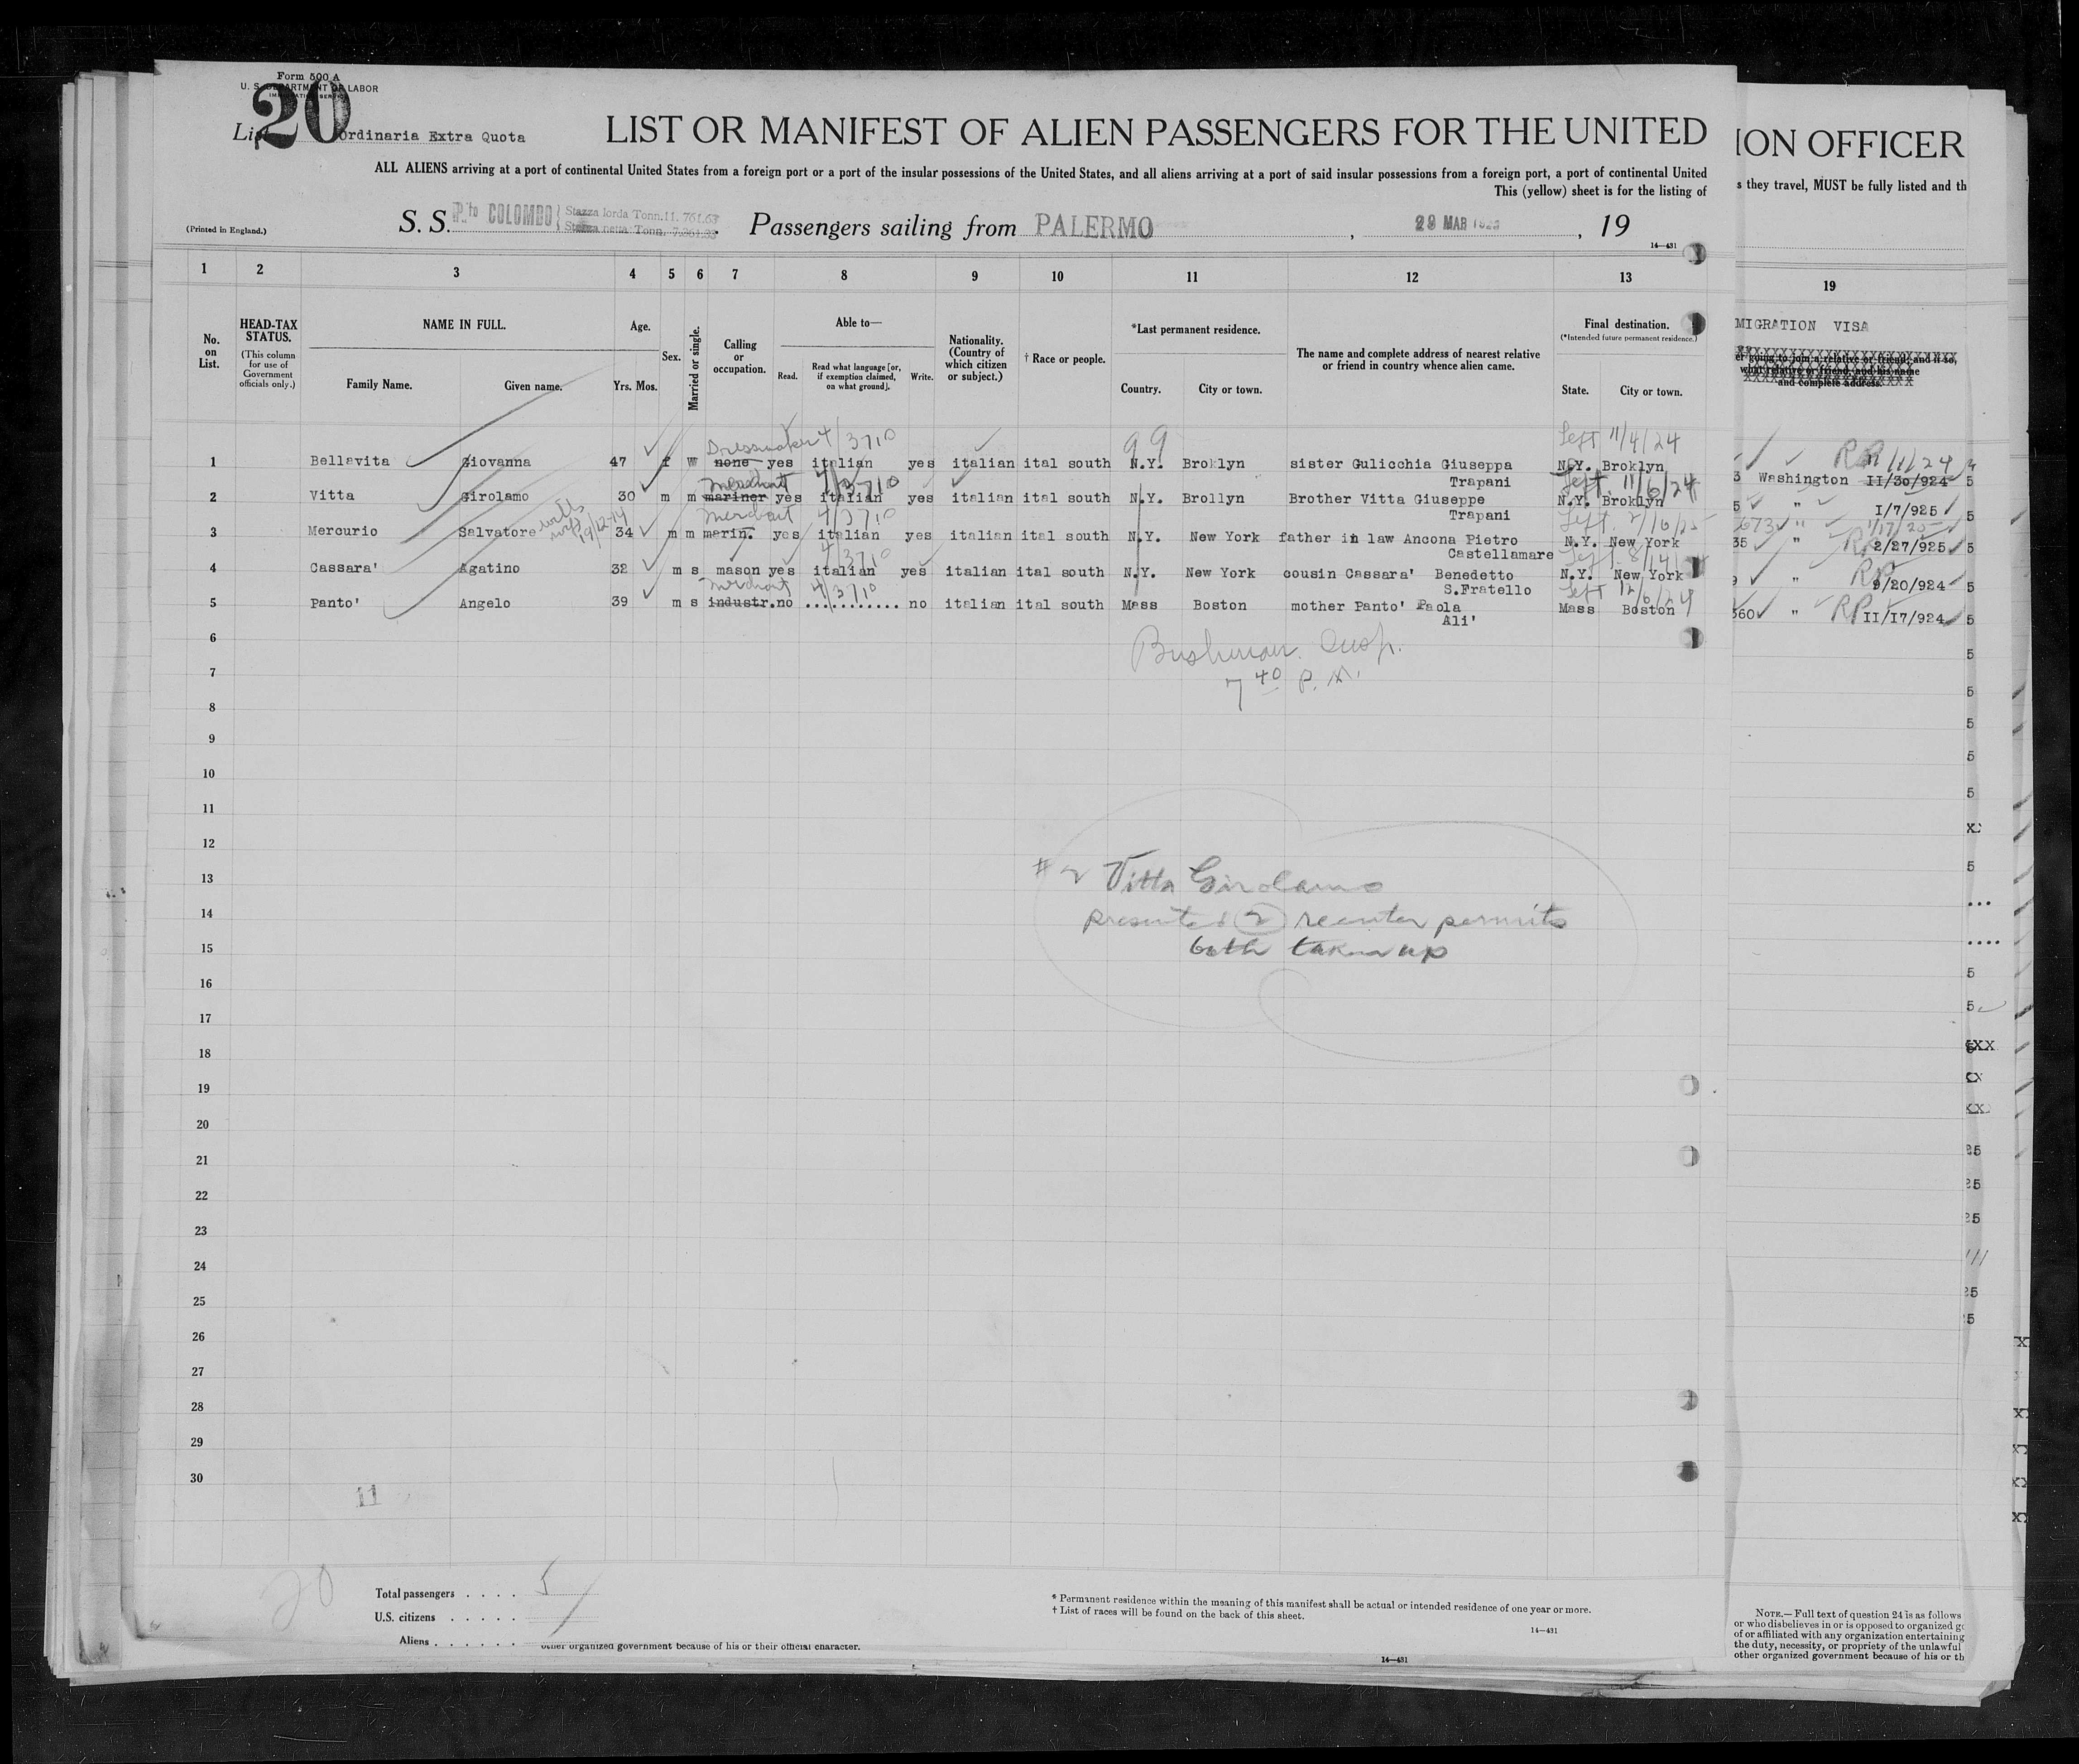 Form 500 A
U. S. DEPARTMENT OF LABOR
IMMIGRATION SERVICE
List 20 Ordinaria Extra Quota
LIST OR MANIFEST OF ALIEN PASSENGERS FOR THE UNITED
ALL ALIENS arriving at a port of continental United States from a foreign port or a port of the insular possessions of the United States, and all aliens arriving at a port of said insular possessions from a foreign port, a port of continental United
This (yellow) sheet is for the listing of
(Printed in England.)
S. S. P.to COLOMBO Stazza lorda Tonn. 11.761.63 Stazza netta Tonn. Passengers sailing from PALERMO, 29 MAR, 19
14—431
1 2 3 4 5 6 7 8 9 10 11 12 13
No. on List.
HEAD-TAX STATUS.
(This column for use of Government officials only.)
NAME IN FULL.
Family Name. Given name.
Age.
Yrs. Mos.
Sex.
Married or single.
Calling or occupation.
Able to—
Read. Read what language [or, if exemption claimed, on what ground]. Write.
Nationality. (Country of which citizen or subject.)
† Race or people.
*Last permanent residence.
Country. City or town.
The name and complete address of nearest relative or friend in country whence alien came.
Final destination.
(*Intended future permanent residence.)
State. City or town.
Dressmaker 4/3710 99 Left 11/4/24
1 Bellavita Giovanna 47 f w none yes italian yes italian ital south N.Y. Broklyn sister Gulicchia Giuseppa N.Y. Broklyn
Merchant 4/3710 Trapani Left 11/6/24
2 Vitta Girolamo 30 m m mariner yes italian yes italian ital south N.Y. Brollyn Brother Vitta Giuseppe N.Y. Broklyn
Merchant 4/3710 Trapani Left 2/16/25
3 Mercurio Salvatore 34 m m marin. yes italian yes italian ital south N.Y. New York father in law Ancona Pietro N.Y. New York
4/3710 Castellamare Left
4 Cassara' Agatino 32 m s mason yes italian yes italian ital south N.Y. New York cousin Cassara' Benedetto N.Y. New York
Merchant 4/3710 S.Fratello Left 12/6/24
5 Panto' Angelo 39 m s industr. no ............ no italian ital south Mass Boston mother Panto' Paola Mass Boston
Ali'
6
Bushman. Insp.
7
7 40 P. M.
8
9
10
11
12
13
# 2 Vitta Girolamo
14
presented 2 reenter permits
15
both taken up
16
17
18
19
20
21
22
23
24
25
26
27
28
29
30
11
20
Total passengers . . . . 5
U.S. citizens . . . . .
Aliens . . . . . .
other organized government because of his or their official character.
* Permanent residence within the meaning of this manifest shall be actual or intended residence of one year or more.
† List of races will be found on the back of this sheet.
14—431
14—431
ION OFFICER
s they travel, MUST be fully listed and th
19
MIGRATION VISA
er going to join a relative or friend; and if so,
what relative or friend, and his name
and complete address.
RP 11/1/24
3 Washington II/30/924
5 " I/7/925
673 " 1/17/25
35 " 2/27/925
9 " RP 9/20/924
360 " RP II/17/924
NOTE.—Full text of question 24 is as follows
or who disbelieves in or is opposed to organized g
of or affiliated with any organization entertaining
the duty, necessity, or propriety of the unlawful
other organized government because of his or th